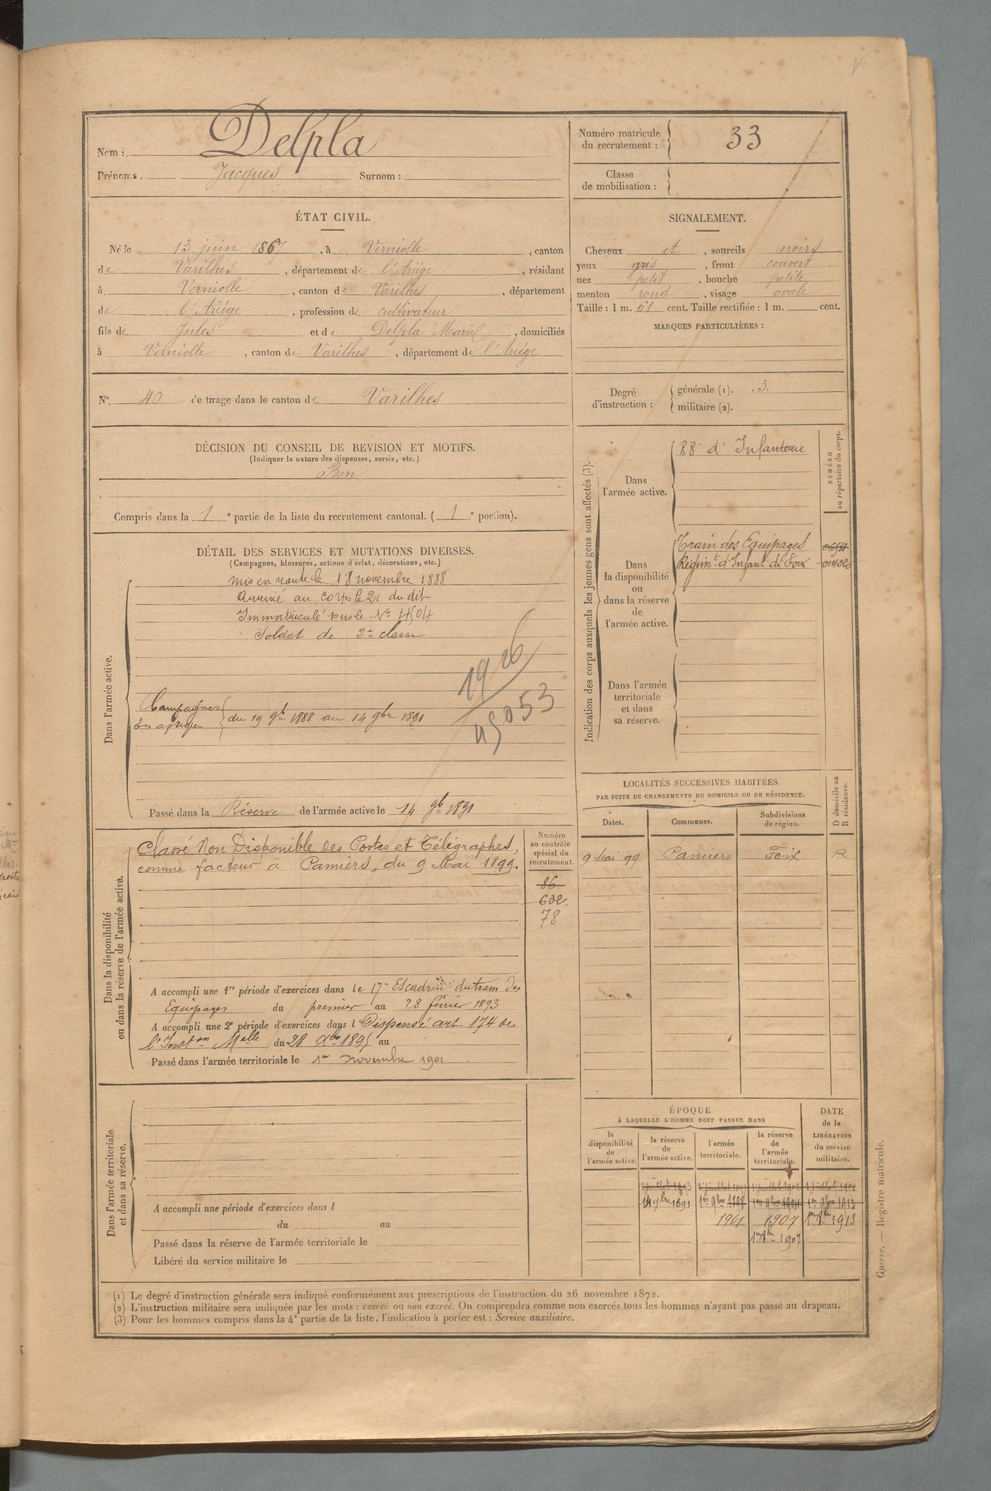 Nom : Delpla
Prénoms. Jacques Surnom :
Numéro matricule
du recrutement : 33
Classe
de mobilisation :
ÉTAT CIVIL.
Né le 13 juin 1867, à Verniolle, canton
de Varilhes, département de l'Ariège, résidant
à Verniolle, canton de Varilhes, département
de l'Ariège, profession de cultivateur
fils de Jules et de Delpla Marie, domiciliés
à Verniolle, canton de Varilhes, département de l'Ariège
SIGNALEMENT.
Cheveux et, sourcils noirs
yeux gris, front couvert
nez petit, bouche petite
menton rond, visage ovale
Taille : 1 m. 61 cent. Taille rectifiée : 1 m. cent.
MARQUES PARTICULIÈRES :
N° 40 de tirage dans le canton de Varilhes
Degré
d'instruction :
générale (1). 3.
militaire (2).
DÉCISION DU CONSEIL DE REVISION ET MOTIFS.
(Indiquer la nature des dispenses, sursis, etc.)
Bon
Compris dans la 1e partie de la liste du recrutement cantonal. (1e portion).
Indication des corps auxquels les jeunes gens sont affectés (3).
NUMÉRO
au répertoire du corps.
Dans
l'armée active.
88e d'Infanterie
Dans
la disponibilité
ou
dans la réserve
de
l'armée active.
Train des Equipages
Régimt d'Infant. de Foix
Dans l'armée
territoriale
et dans
sa réserve.
DÉTAIL DES SERVICES ET MUTATIONS DIVERSES.
(Campagnes, blessures, actions d'éclat, décorations, etc.)
Dans l'armée active.
mis en route le 18 novembre 1888
Arrivé au corps le 21 du dit
Immatriculé sous le N° 4504
Soldat de 2e classe
1926
45053
Campagnes
en afrique
du 19 9bre 1888 au 14 9bre 1891
Passé dans la Réserve de l'armée active le 14 9bre 1891
LOCALITÉS SUCCESSIVES HABITÉES
PAR SUITE DE CHANGEMENTS DE DOMICILE OU DE RÉSIDENCE.
D domicile ou
R résidence.
Dates. Communes. Subdivisions
de région.
9 Mai 99 Pamiers Foix R
Dans la disponibilité
ou dans la réserve de l'armée active.
Numéro
au contrôle
spécial du
recrutement.
86
632
78
Classé Non Disponible des Postes et Télégraphes,
comme facteur à Pamiers, du 9 Mai 1899.
A accompli une 1re période d'exercices dans le 17e Escadron du train des
Equipages du premier au 28 février 1893
A accompli une 2e période d'exercices dans l Dispensé art 174 de
l'Inston Melle du 28 Xbre 1895 au
Passé dans l'armée territoriale le 1er novembre 1901
Dans l'armée territoriale
et dans sa réserve.
A accompli une période d'exercices dans l
du au
Passé dans la réserve de l'armée territoriale le
Libéré du service militaire le
ÉPOQUE
À LAQUELLE L'HOMME DOIT PASSER DANS
la
disponibilité
de
l'armée active.
la réserve
de
l'armée active.
l'armée
territoriale.
la réserve
de
l'armée
territoriale.
DATE
de la
LIBÉRATION
du service
militaire.
14 9bre 1891
1901 1907 1er 9bre 1913
1er 9bre 1907
Guerre. — Registre matricule.
(1) Le degré d'instruction générale sera indiqué conformément aux prescriptions de l'instruction du 26 novembre 1872.
(2) L'instruction militaire sera indiquée par les mots : exercé ou non exercé. On comprendra comme non exercés tous les hommes n'ayant pas passé au drapeau.
(3) Pour les hommes compris dans la 4e partie de la liste, l'indication à porter est : Service auxiliaire.